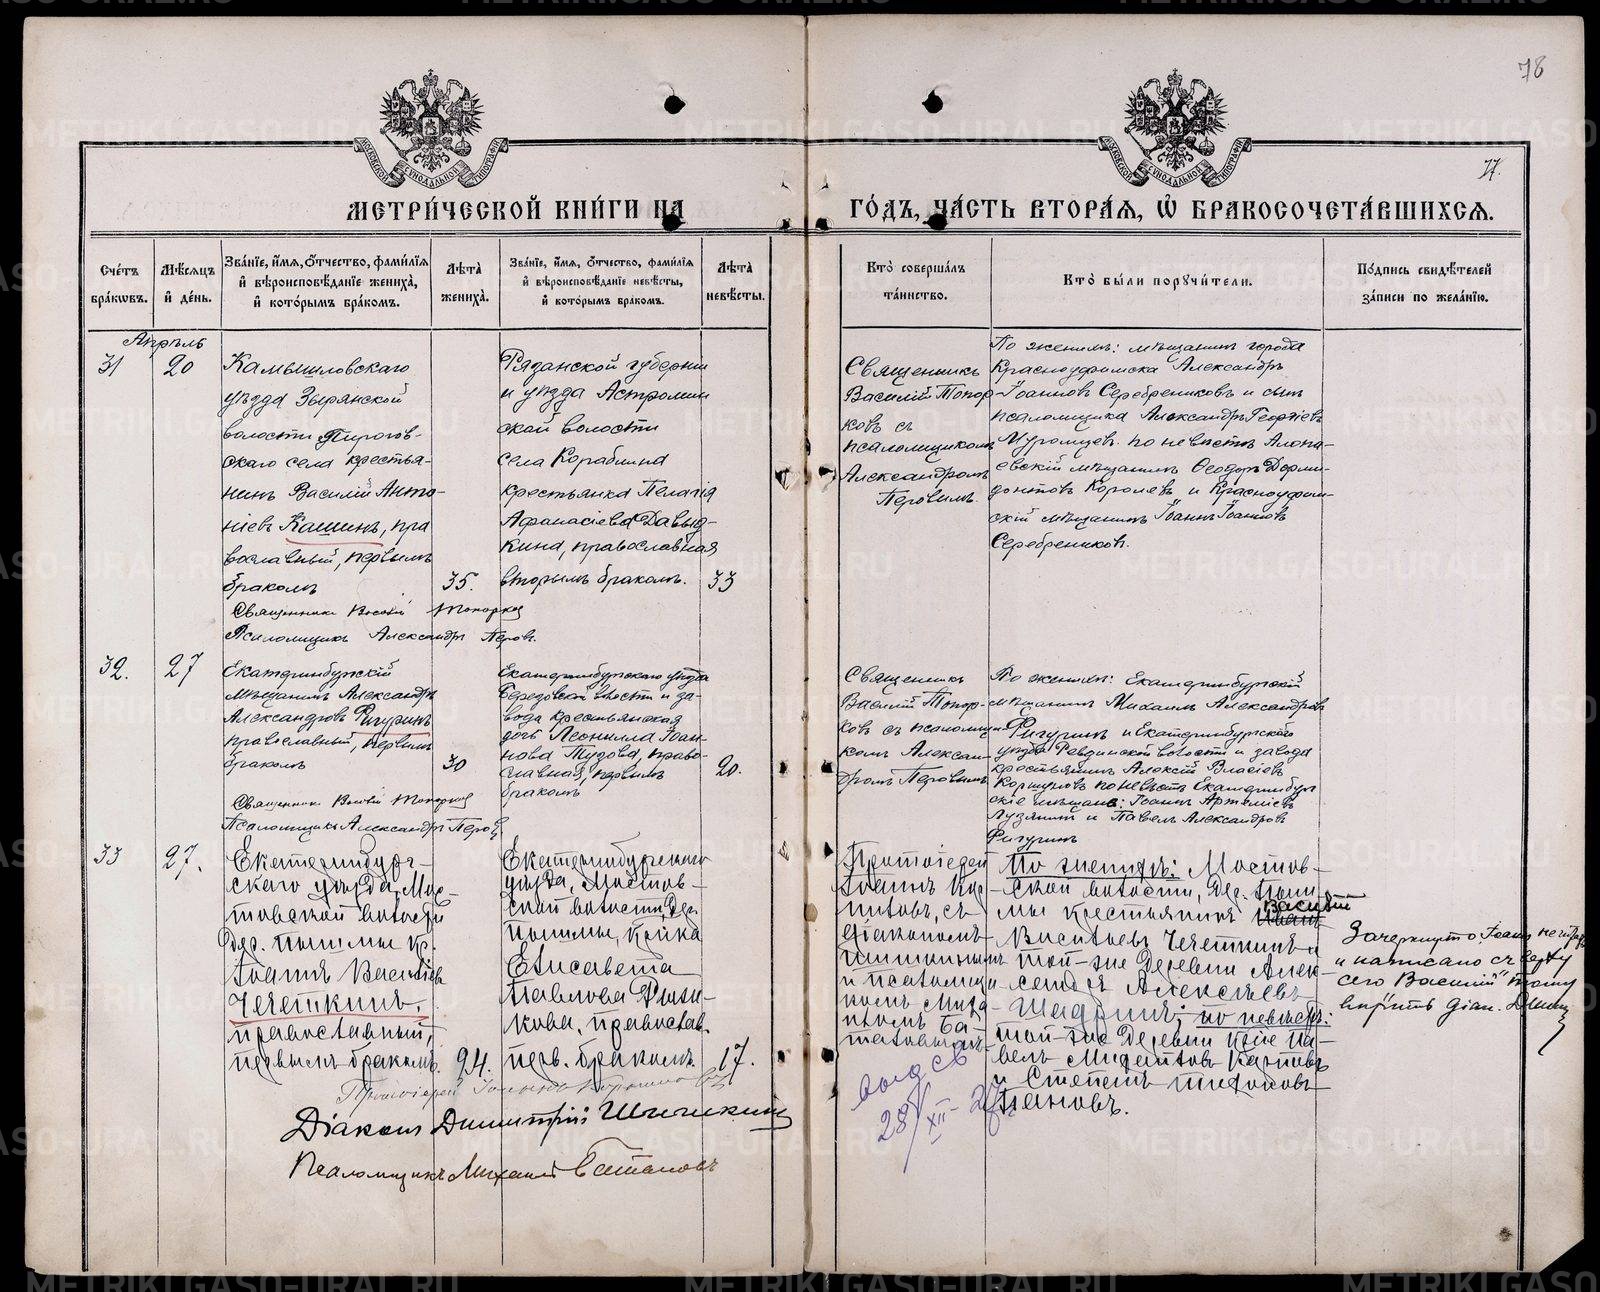 78
77.
МЕТРИ́ЧЕСКОЙ КНИ́ГИ НА
ГО́ДЪ, ЧА́СТЬ ВТОРА́Я, Ѡ БРАКОСОЧЕТА́ВШИХСЯ.
МОСКОВСКОЙ СѴНОДАЛЬНОЙ ТИПОГРАФІИ
МОСКОВСКОЙ СѴНОДАЛЬНОЙ ТИПОГРАФІИ
Сче́тъ бра́кѡвъ.
Мѣ́сяцъ и҆ де́нь.
Зва́нїе, и҆́мя, ѻ҆́тчество, фами́лїя и҆ вѣроисповѣ́данїе жениха̀, и҆ кото́рымъ бра́комъ.
Лѣ́та жениха̀.
Зва́нїе, и҆́мя, ѻ҆́тчество, фами́лїя и҆ вѣроисповѣ́данїе невѣ́сты, и҆ кото́рымъ бра́комъ.
Лѣ́та невѣ́сты.
Кто̀ соверша́лъ та́инство.
Кто̀ бы́ли порꙋчи́тели.
По́дпись свидѣ́телей за́писи по жела́нїю.
Апрѣль
31
20
Камышловскаго
уѣзда Зырянской
волости Пирогов-
скаго села крестья-
нинъ Василій Анто-
ніевъ Кашинъ, пра
вославный, первымъ
бракомъ
35.
Рязанской губерніи
и уѣзда
ской волости
села Кораблина
крестьянка Пелагія
Афанасіева Давыд-
кина, православная
вторымъ бракомъ.
33
Священникъ
Василій Топор
ковъ съ
псаломщикомъ
Александромъ
Перовымъ
По женихѣ: мѣщанинъ города
Красноуфимска Александръ
Іоанновъ Серебрениковъ и сынъ
псаломщика Александръ Георгіевъ
Муромцевъ. по невѣстѣ Алапа-
евскій мѣщанинъ Ѳеодоръ Дорми-
донтовъ Королевъ и Красноуфим-
скій мѣщанинъ Іоаннъ Іоанновъ
Серебрениковъ.
Священникъ Василій Топорков
Псаломщикъ Александръ Перовъ.
32.
27
Екатеринбургскій
мѣщанинъ Александръ
Александровъ Фигуринъ
православный, первымъ
бракомъ
30
Екатеринбургскаго уѣзда
Березовской волости и за-
вода крестьянская
дочь Леонилла Іоан-
нова Тузова, право-
славная, первымъ
бракомъ
20.
Священникъ
Василій Топор-
ковъ съ псаломщи
комъ Алексан-
дромъ Перовымъ
По женихѣ: Екатеринбургскій
мѣщанинъ Михаилъ Александровъ
Фигуринъ и Екатеринбургскаго
уѣзда Ревдинской волости и завода
крестьянинъ Алексій Власіевъ
Коршуновъ по невѣстѣ Екатеринбург
скіе мѣщане: Іоаннъ Артеміевъ
Лузянин и Павелъ Александровъ
Фигуринъ
Священник Василій Топорков
Псаломщикъ Александръ Перовъ
33
27.
Екатеринбург-
скаго уѣзда, Мос-
товской волости
дер. Пышмы кр.
Іоаннъ Василіевъ
Чечеткинъ,
православный,
первымъ бракомъ.
24.
Екатеринбургскаго
уѣзда, Мостов-
ской волости, дер.
Пышмы, кр-нка
Елисавета
Павлова
кова, православ.
перв. бракомъ.
17.
Протоіерей
Іоаннъ
съ
діакономъ
и псаломщи
комъ Миха
иломъ Ба
тановымъ
По женихѣ: Мостов-
ской волости, дер. Пыш
мы крестьянинъ Иванъ
Василій
Василіевъ Чечеткинъ и
той-же деревни Алек-
сандръ Алексѣевъ
по невѣстѣ:
той-же деревни кр-не Па-
велъ Карповъ
и Степанъ Тихоновъ
Пановъ.
Зачеркнуто: Іоаннъ
и написано съ верху
сего Василій тому
вѣрить діак.
Протоіерей Іоаннъ
Діаконъ Димитрій Шишкинъ
Псаломщикъ Михаилъ Батановъ
28/XII-27